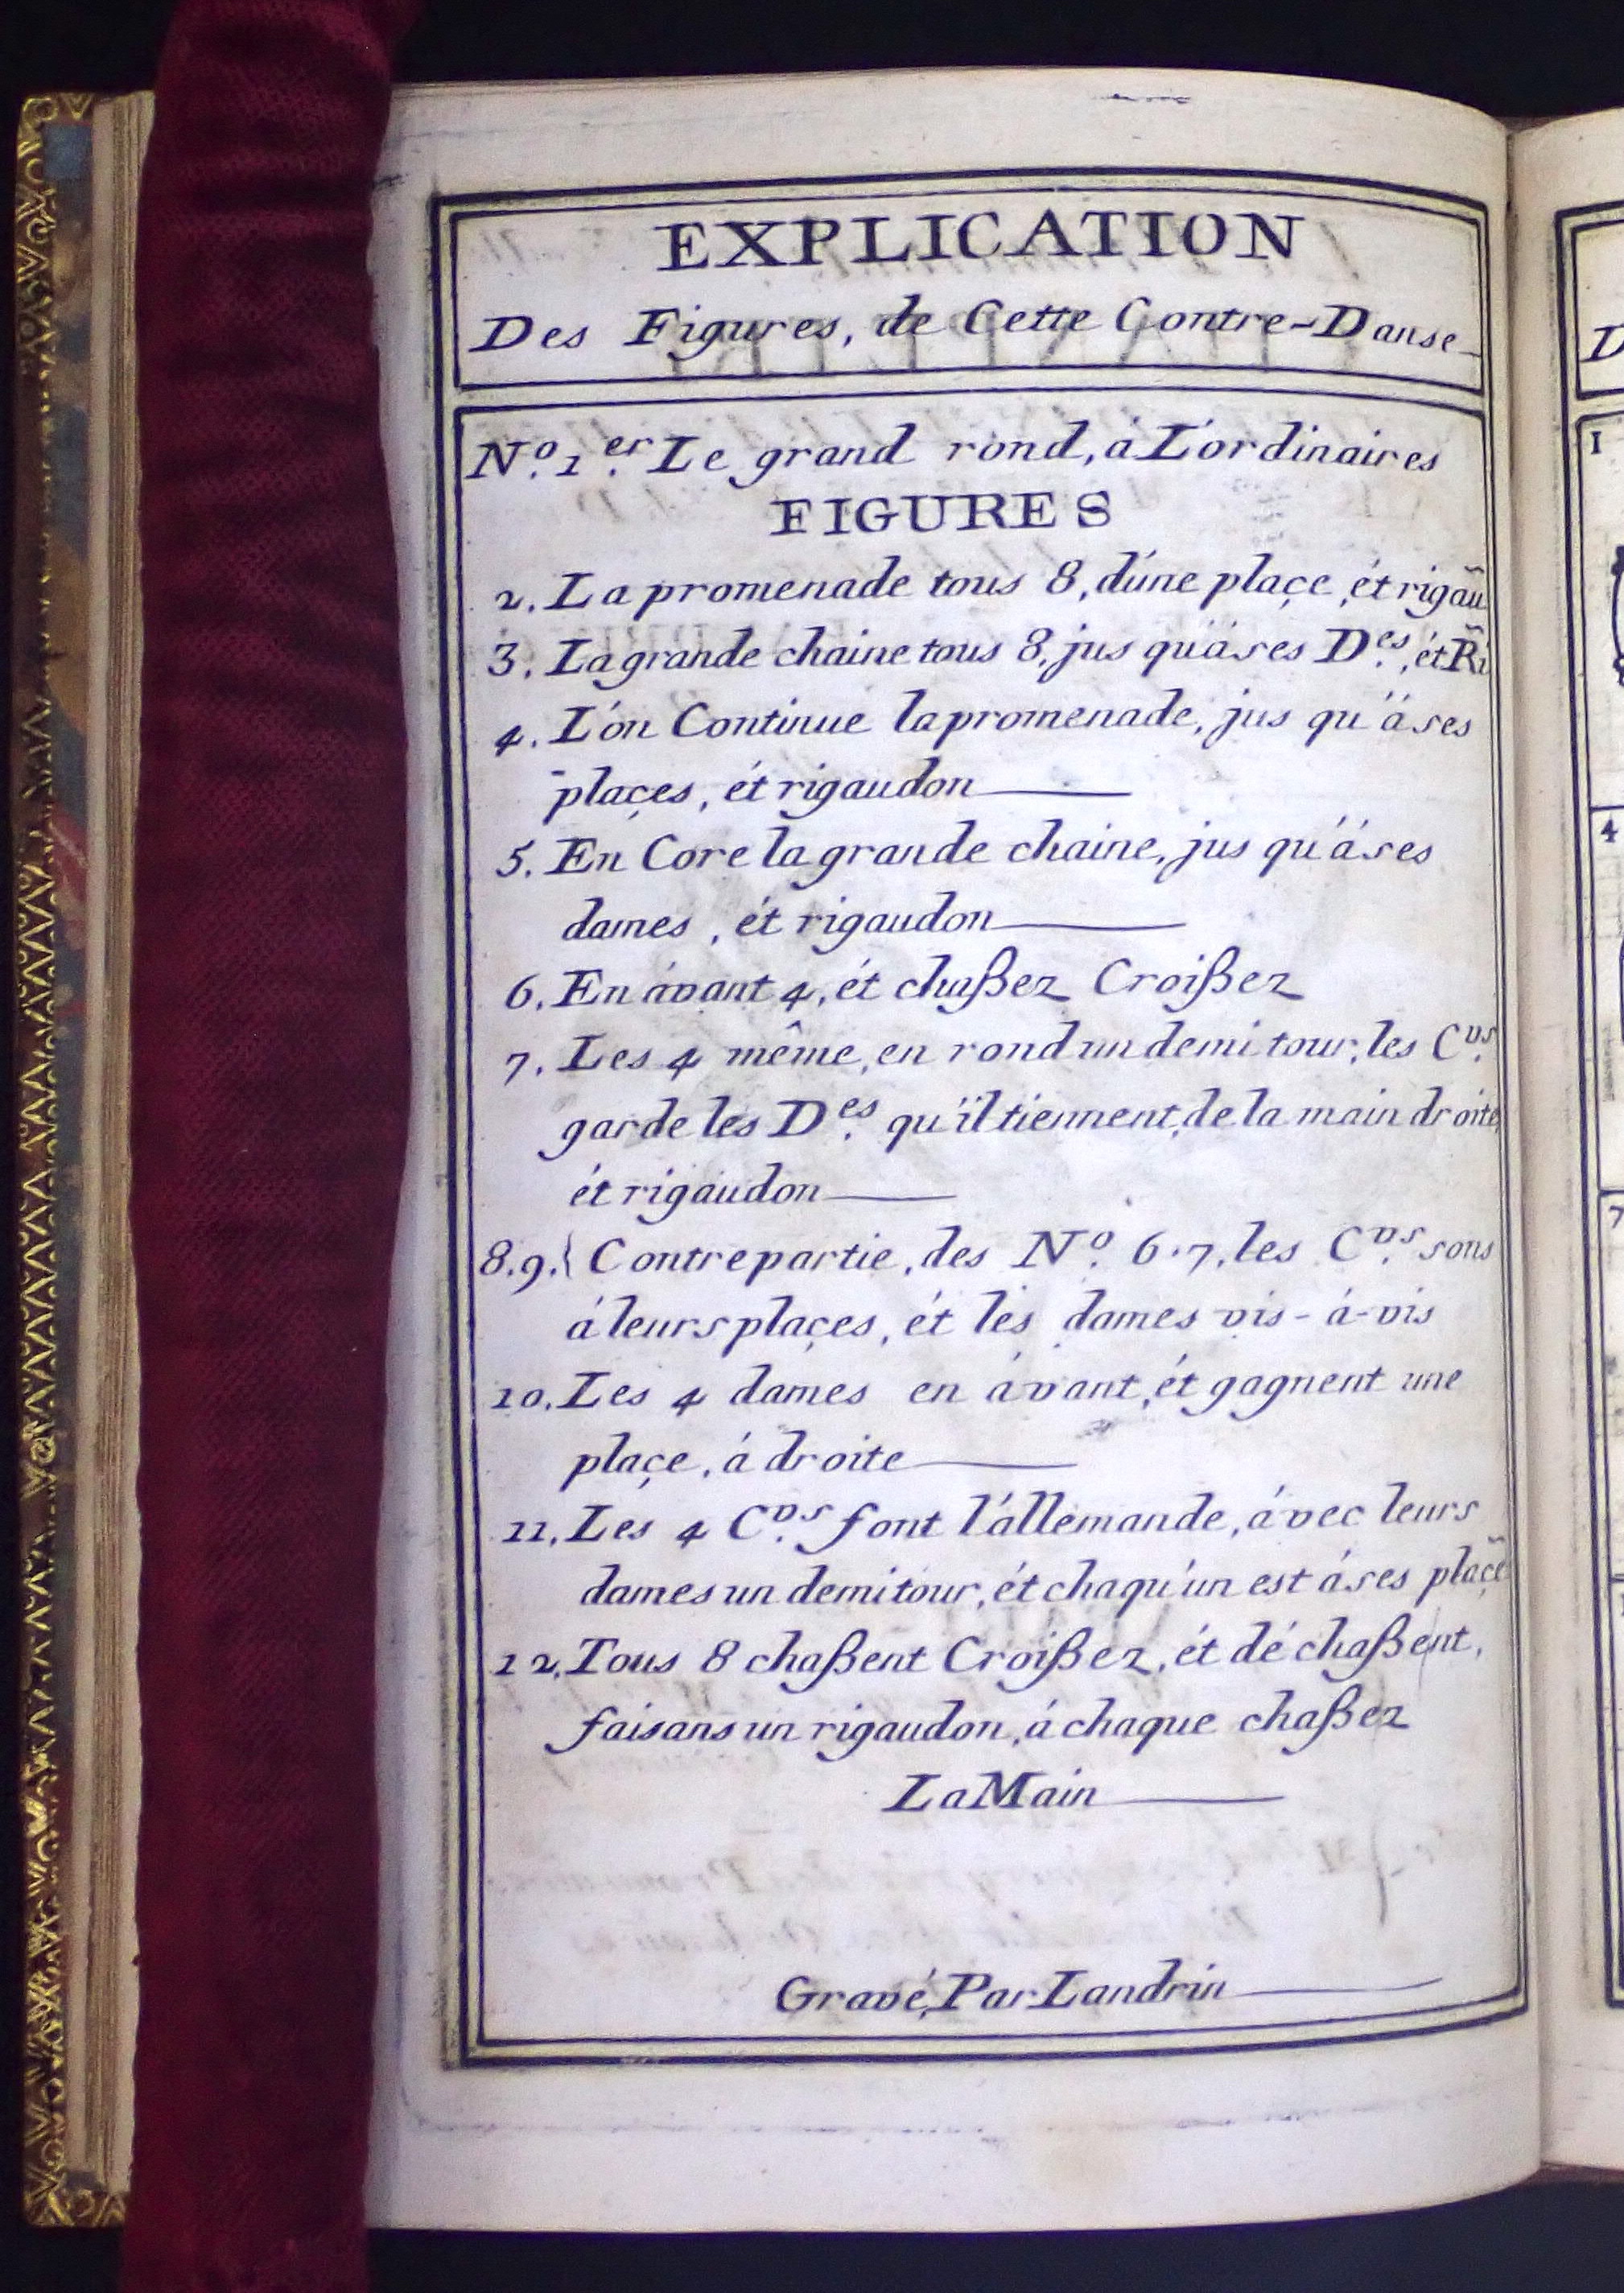 EXPLICATION
Des Figures, de Cette Contre-Danse
N.º 1.er Le grand rond, á L'ordinaires
FIGURES
2. La promenade tous 8, d'úne plaçe, ét rigãu
3. La grande chaine tous 8, jus qu'á ses D.es, ét R̃i
4. L'ón Continue la promenade, jus qu'á ses
plaçes, ét rigaudon
5. En Core la grande chaine, jus qu'á ses
dames, ét rigaudon
6. En ávant 4, ét chaßez Croißez
7. Les 4 même, en rond un demi tour, les C.vs
garde les D.es qu'il tiennent, de la main droite,
ét rigaudon
8.9.{ Contre partie, des N.º 6.7, les C.vs sons
á leurs plaçes, ét les dames vis-á-vis
10. Les 4 dames en ávant, ét gagnent une
plaçe, á droite
11. Les 4 C.vs font l'állemande, ávec leurs
dames un demi tour, ét chaqu'un est á ses plaçẽ
12. Tous 8 chaßent Croißez, ét dé chaßent,
faisans un rigaudon, á chaque chaßez
La Main
Gravé, Par Landrin
1
D
4
7